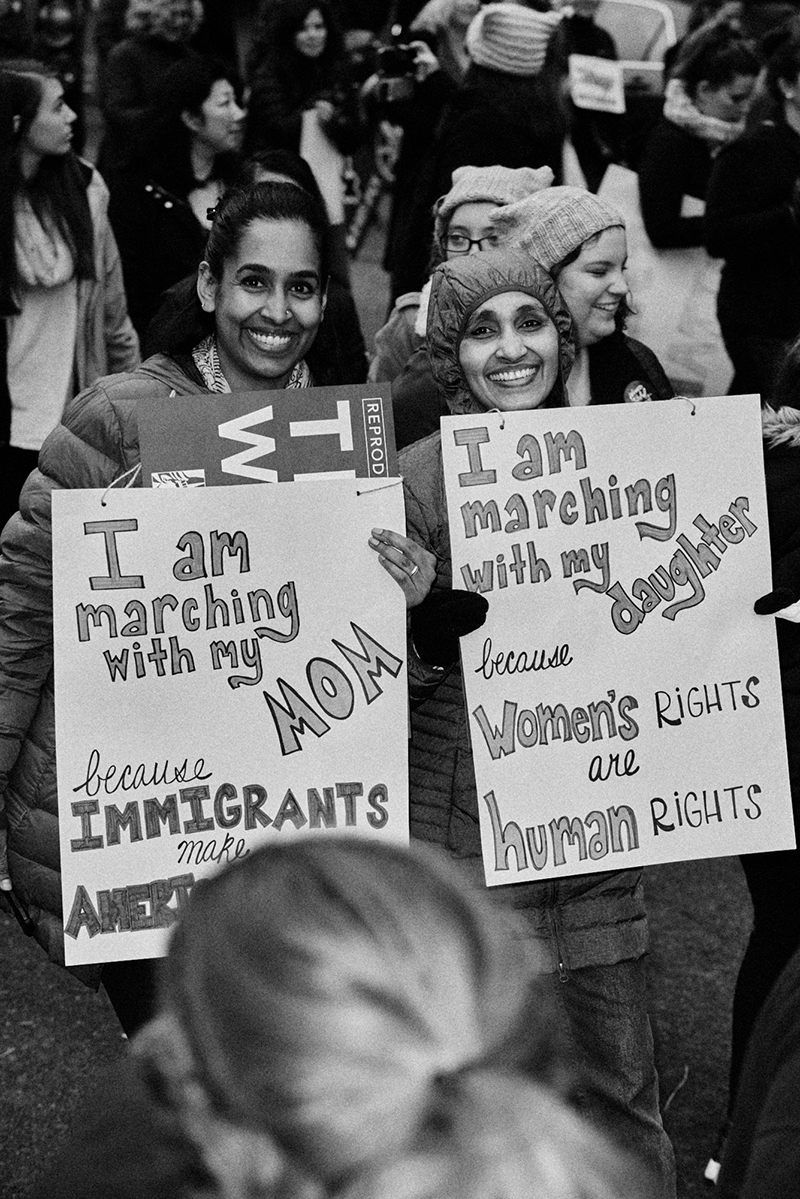 I am
marching
with my
MOM
because
IMMIGRANTS
make
I am
marching
with my
daughter
because
Women's RIGHTS
are
human RIGHTS
REPROD